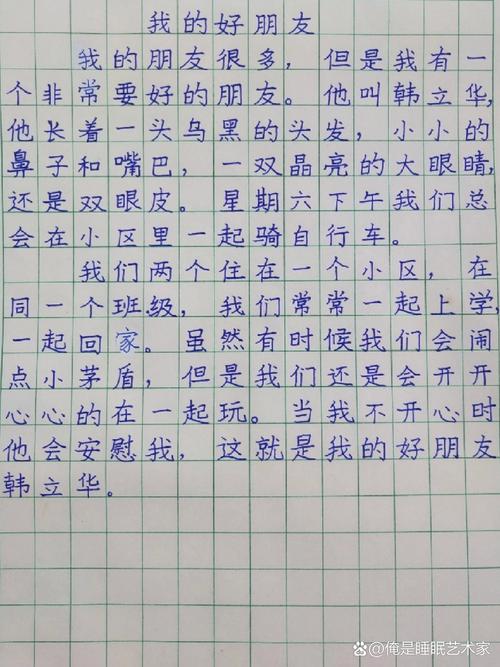 我的好朋友
我的朋友很多，但是我有一
个非常要好的朋友。他叫韩立华，
他长着一头乌黑的头发，小小的
鼻子和嘴巴，一双晶亮的大眼睛，
还是双眼皮。星期六下午我们总
会在小区里一起骑自行车。
我们两个住在一个小区，在
同一个班级，我们常常一起上学，
一起回家。虽然有时候我们会闹
点小茅盾，但是我们还是会开开
心心的在一起玩。当我不开心时
他会安慰我，这就是我的好朋友
韩立华。
@俺是睡眠艺术家